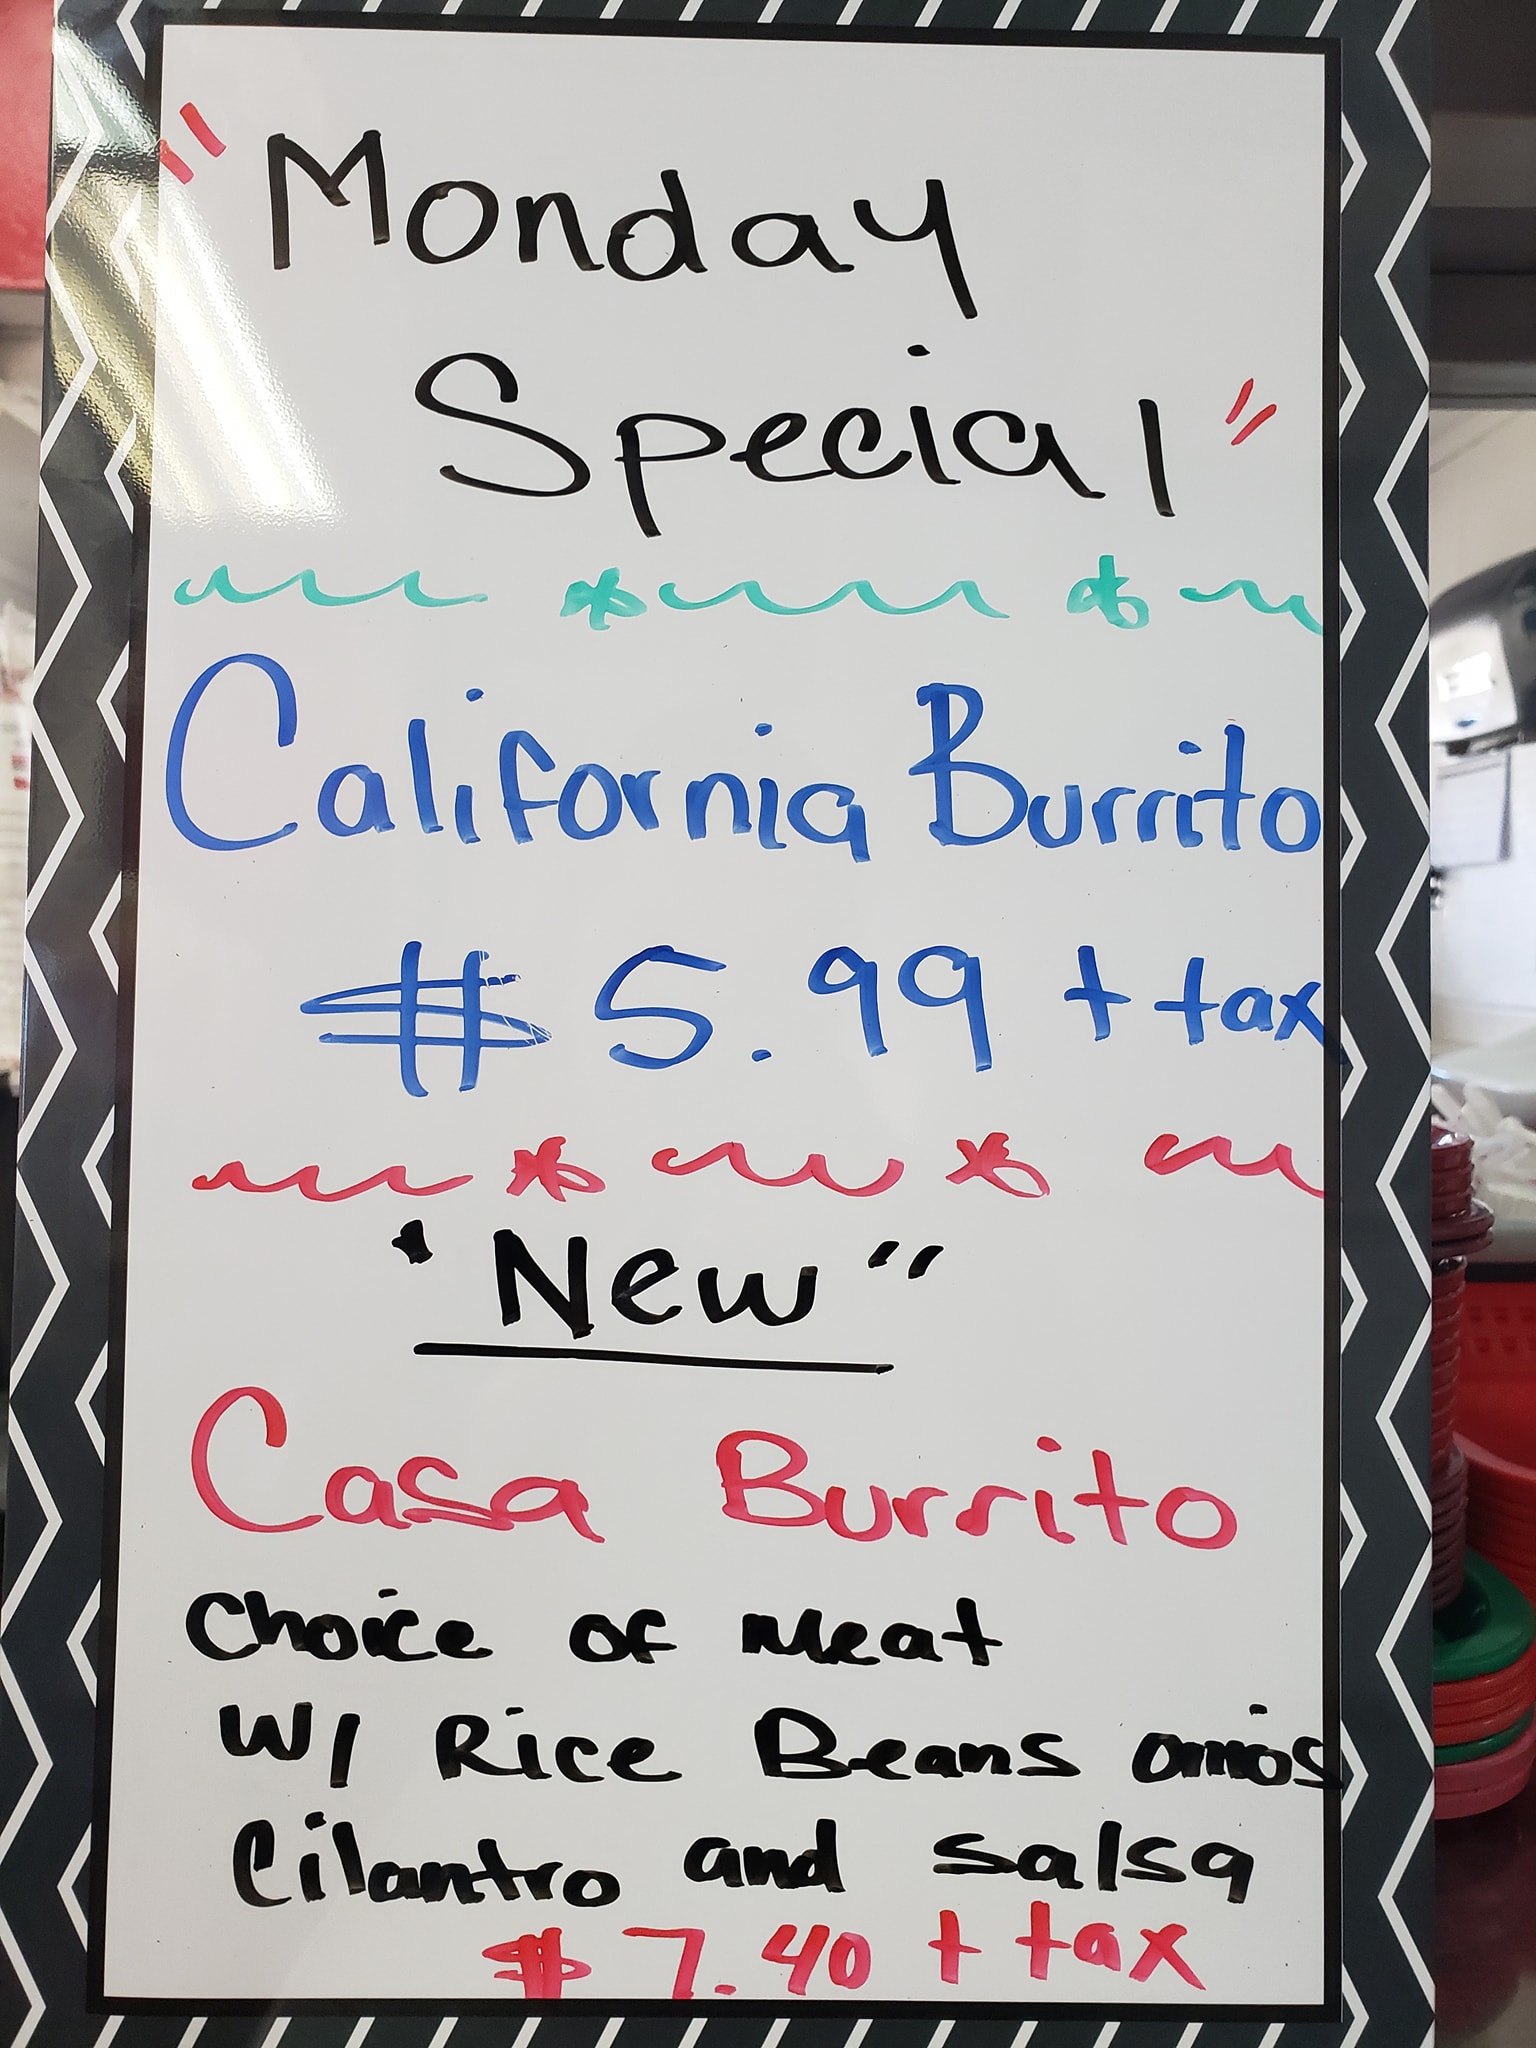 "Monday
Special"
California Burrito
$ 5.99 + tax
'New"
Casa Burrito
Choice of meat
W/ Rice Beans onios
Cilantro and salsa
$ 7.40 + tax